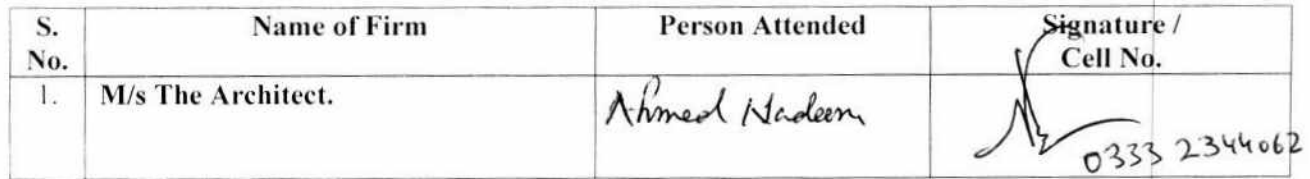 S. No. Name of Firm Person Attended Signature / Cell No.
1. M/s The Architect. Ahmed Nadeem 0333 2344062